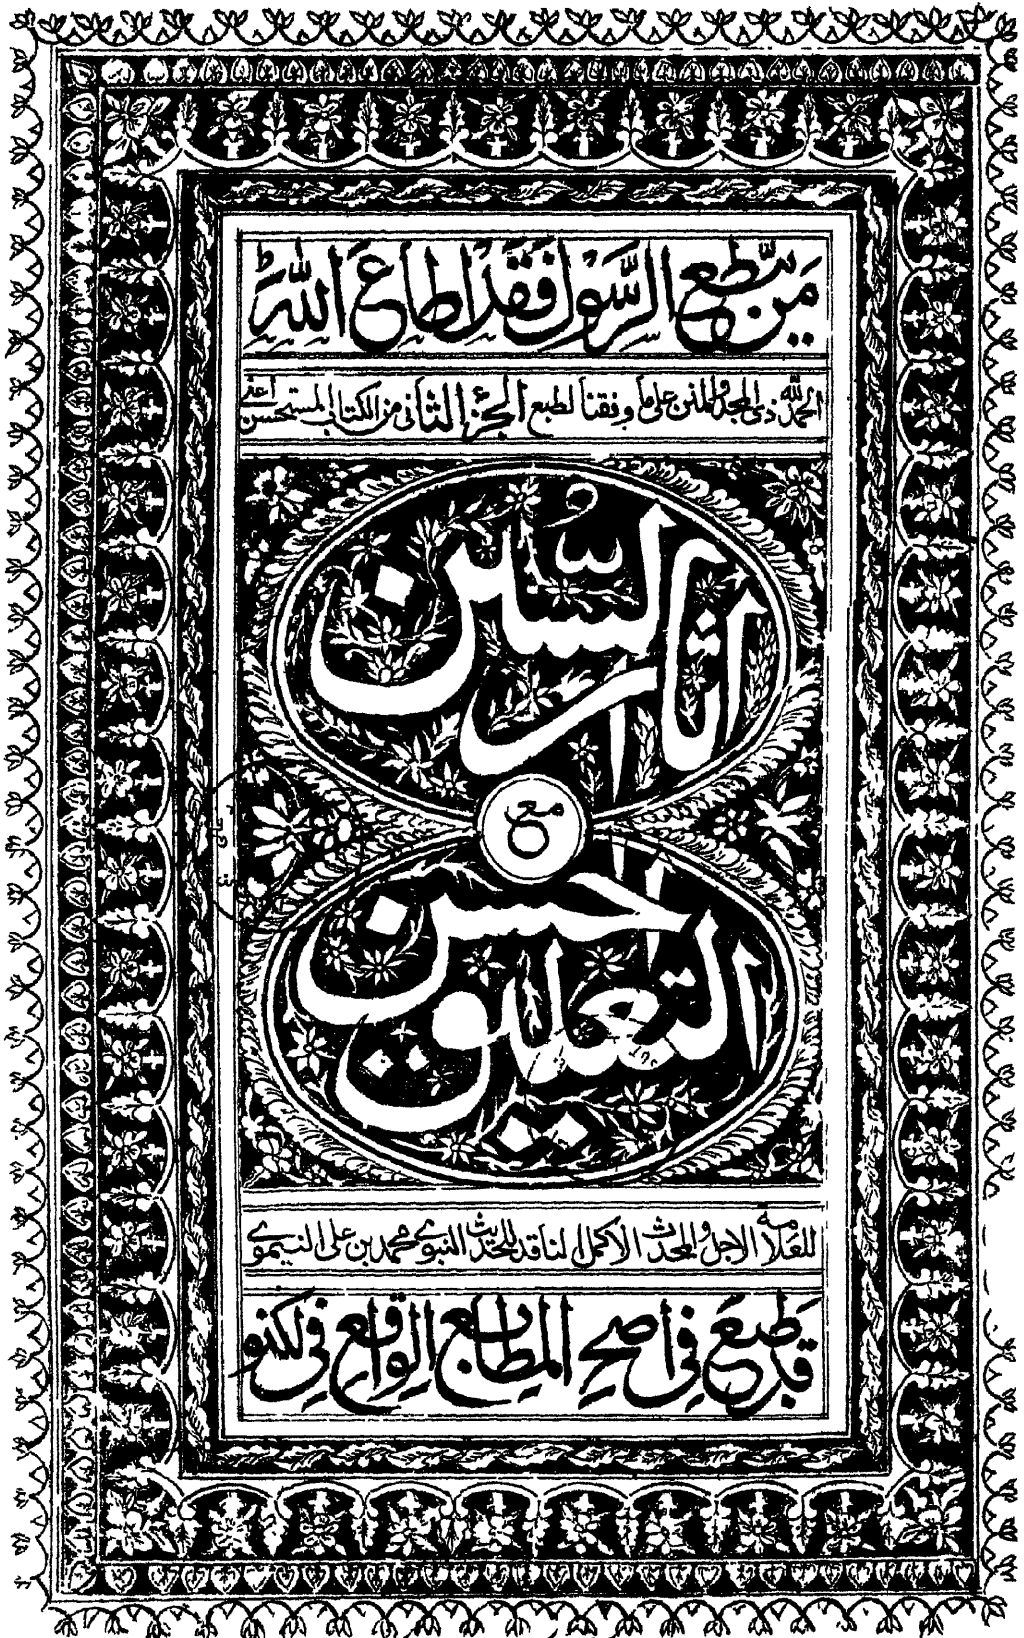 مَن يُّطِعِ الرَّسُولَ فَقَدْ اَطَاعَ اللّٰهَ
الحمد لله ذي المجد والمنن على ما وفقنا لطبع الجزء الثاني من الكتاب المستحسن اعني
اٰثار السُّنن
مع
التعليق الحسن
للعلامة الاجل والمحدث الاكمل الناقد للحديث النبوي محمد بن علي النيموي
قد طبع في اصح المطابع الواقع في لكنو